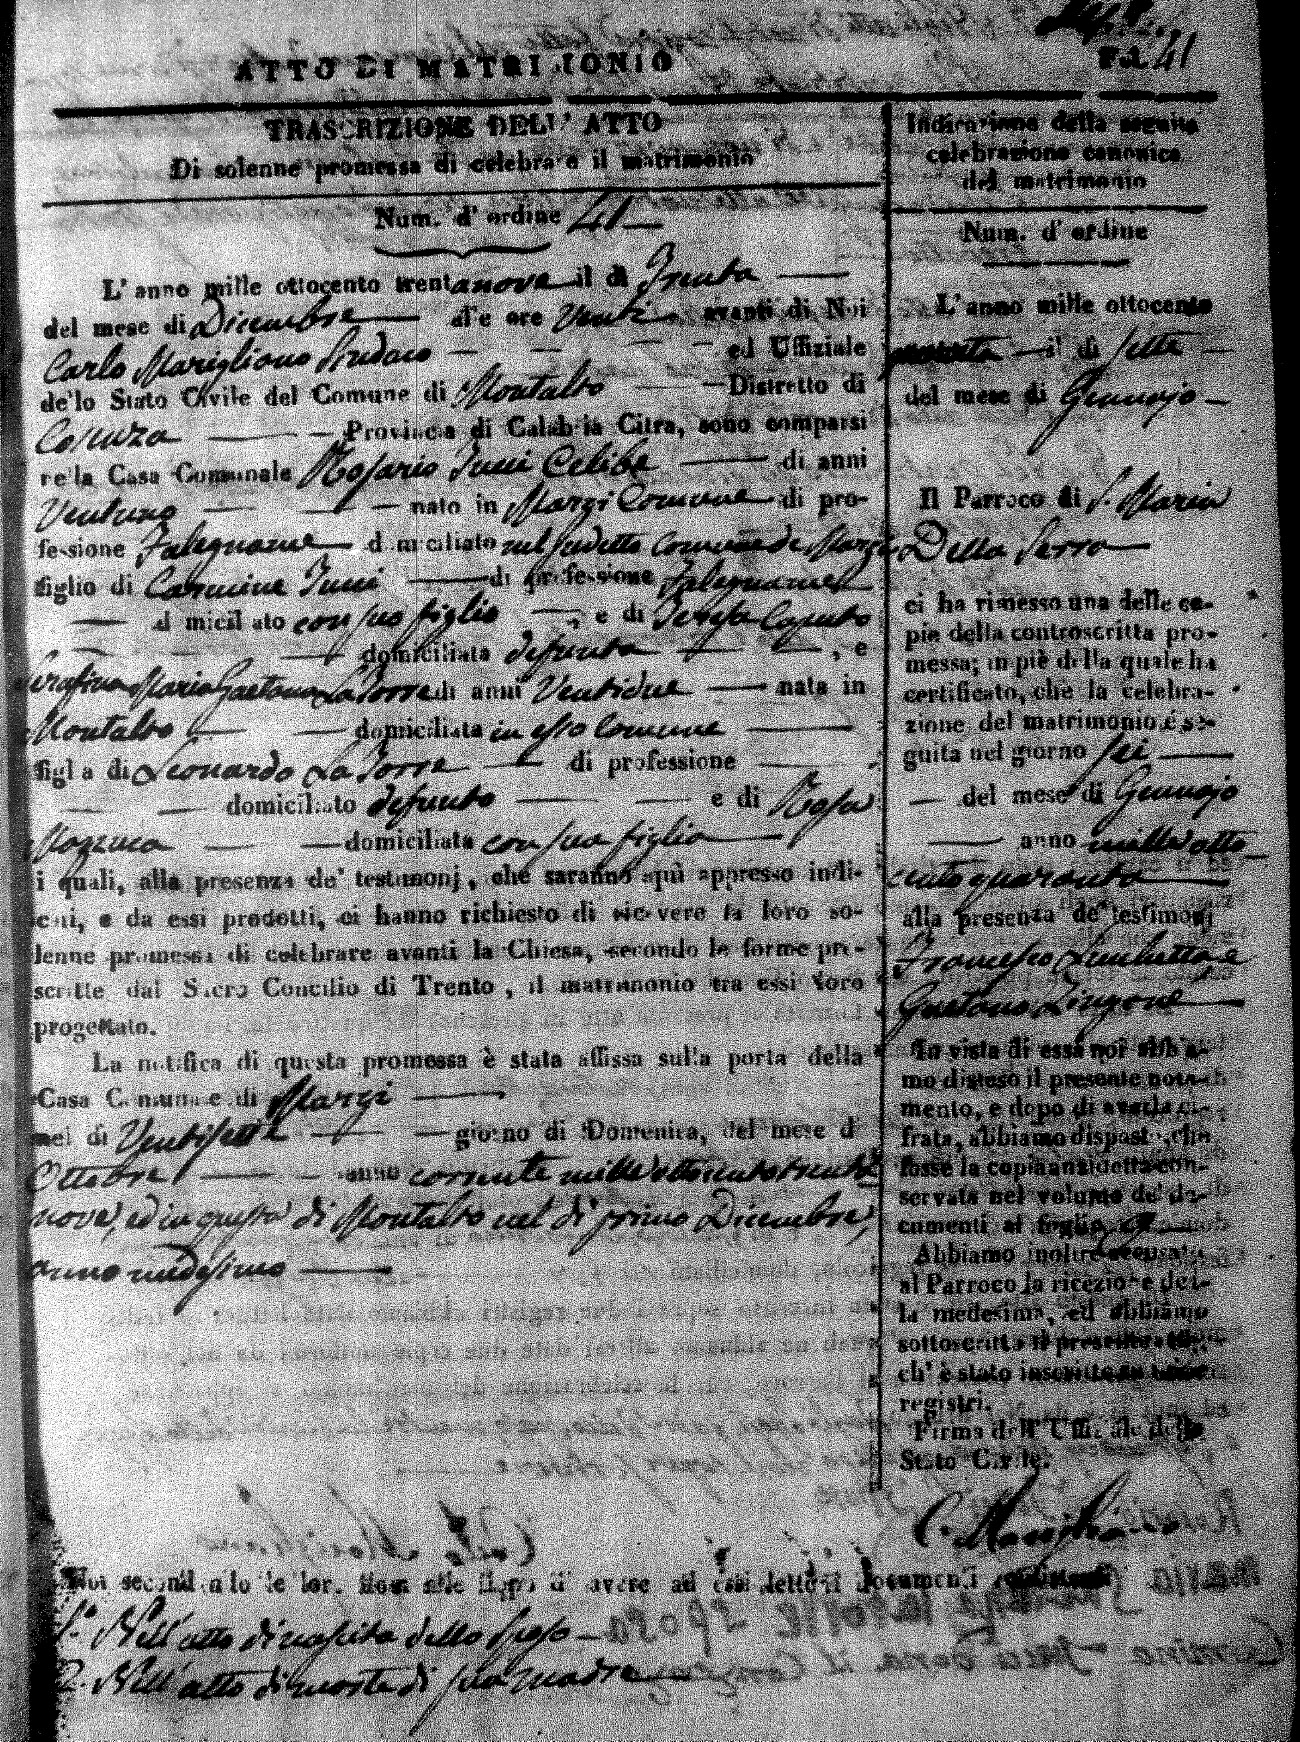 ATTO DI MATRIMONIO
Fol. 41
TRASCRIZIONE DELL' ATTO
Di solenne promessa di celebrare il matrimonio
Num. d' ordine 41
L' anno mille ottocento trentanove il di Trenta
del mese di Dicembre alle ore Venti avanti di Noi
Carlo Marigliano Sindaco ed Uffiziale
dello Stato Civile del Comune di Montalto Distretto di
Cosenza Provincia di Calabria Citra, sono comparsi
nella Casa Comunale Rosario Iuni Celibe di anni
Ventuno nato in Marzi Comune di pro-
fessione Falegname domiciliato nel sudetto Comune di Marzi
figlio di Carmine Iuni di professione Falegname
domiciliato con suo figlio, e di Teresa Caputo
domiciliata defunta, e
Serafina Maria Gaetana La Torre di anni Ventidue nata in
Montalto domiciliata in esso Comune
figlia di Lionardo La Torre di professione
domiciliato defunto e di Rosa
Mazzuca domiciliata con sua figlia
i quali, alla presenza de' testimonj, che saranno quì appresso indi-
cati, e da essi prodotti, ci hanno richiesto di ricevere la loro so-
lenne promessa di celebrare avanti la Chiesa, secondo le forme pre-
scritte dal Sacro Concilio di Trento, il matrimonio tra essi loro
progettato.
La notifica di questa promessa è stata affissa sulla porta della
Casa Comunale di Marzi
nel di Ventisette giorno di Domenica, del mese d
Ottobre anno corrente mille ottocento trenta
nove, ed in questa di Montalto nel dì primo Dicembre,
anno medesimo
Noi secondando le loro dopo di avere ad essi letti i documenti
1.° Nell'atto di nascita dello sposo
2. Nell'atto di morte di sua madre
Indicazione della seguita
celebrazione canonica
del matrimonio
Num. d' ordine
L' anno mille ottocento
quaranta il di Sette
del mese di Gennajo
Il Parroco di S. Maria
Della Serra
ci ha rimesso una delle co-
pie della controscritta pro-
messa; in piè della quale ha
certificato, che la celebra-
zione del matrimonio è se-
guita nel giorno Sei
del mese di Gennajo
anno mille otto
cento quaranta
alla presenza de' testimonj
Francesco e
Gaetano Zingone
In vista di essa noi abbia-
mo disteso il presente notа-
mento, e dopo di averla ci-
frata, abbiamo disposto, che
fosse la copia anzidetta con-
servata nel volume de' do-
cumenti al foglio
Abbiamo inoltre accusata
al Parroco la ricezione del-
la medesima, ed abbiamo
sottoscritto il presente atto,
ch' è stato inscritto su
registri.
Firma dell' Uffiziale dello
Stato Civile.
C. Marigliano